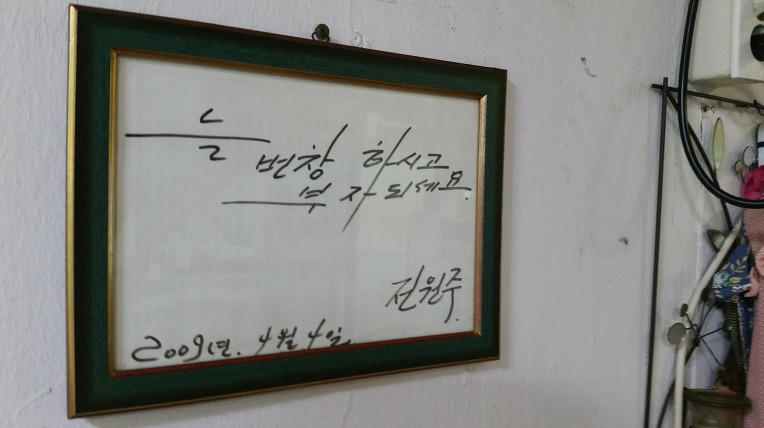 늘 번창 하시고
부자 되세요.
전원주.
2009년. 4월 4일.